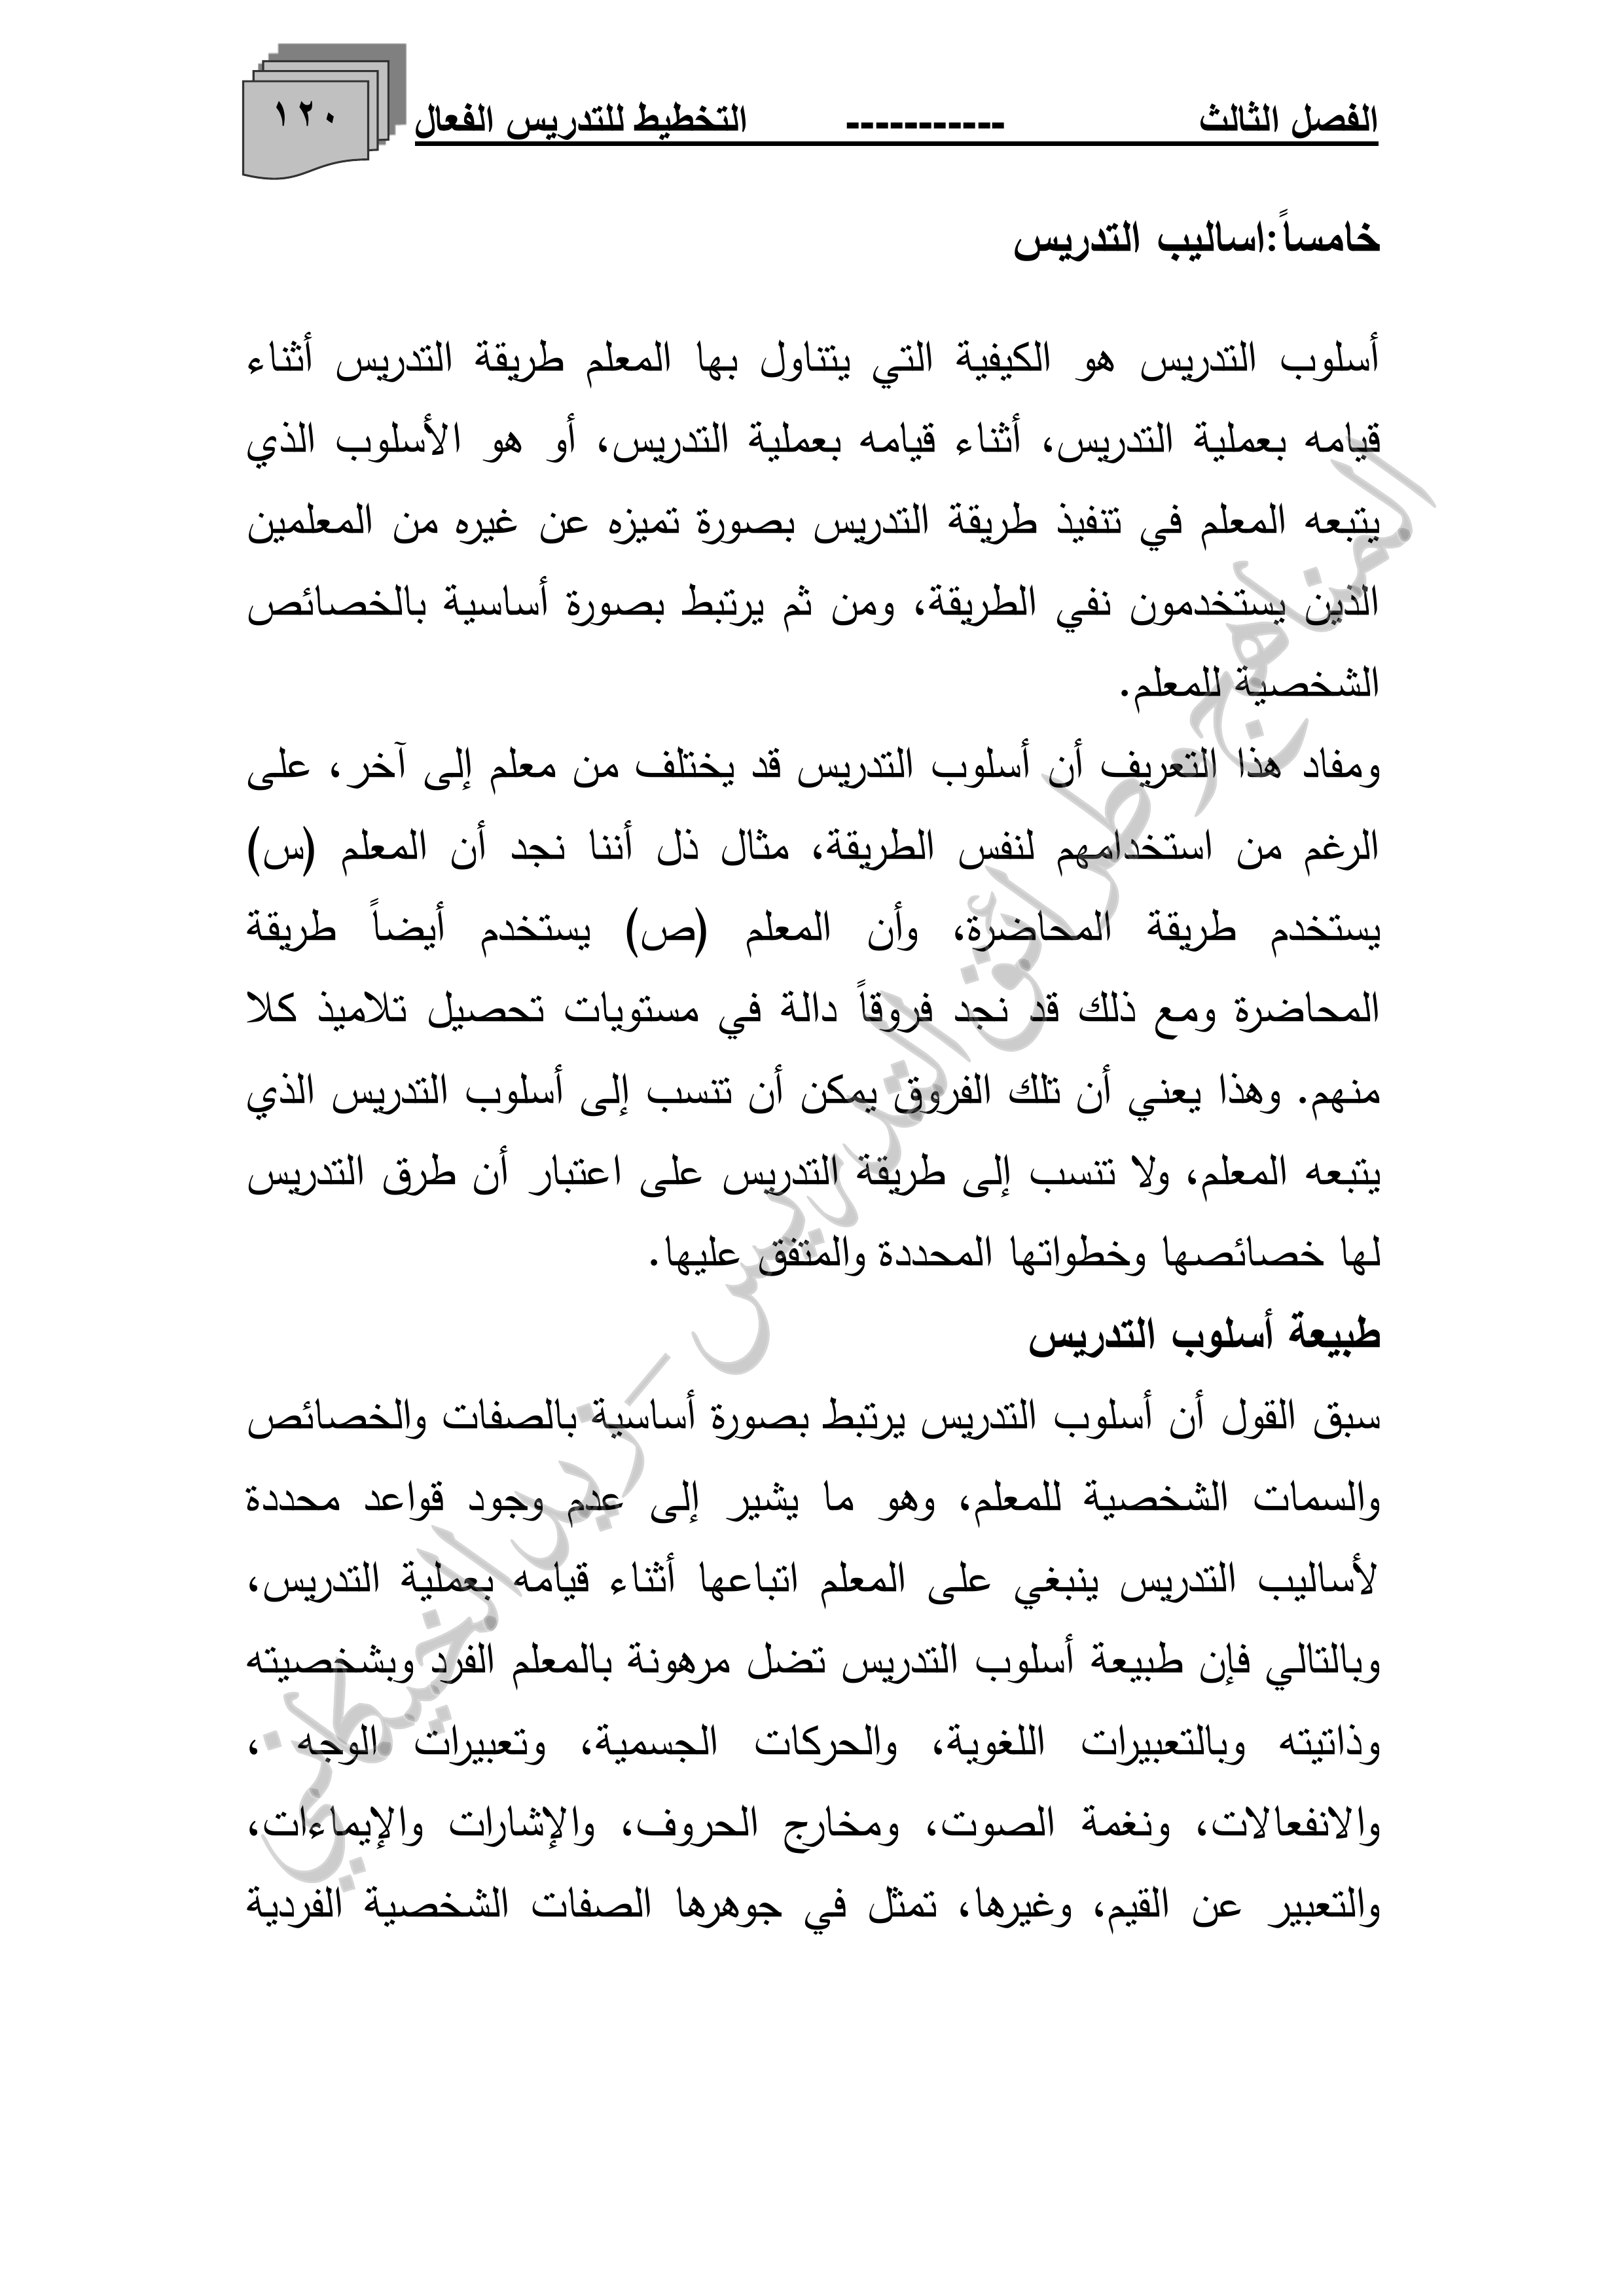 الفصل الثالث ----------- التخطيط للتدريس الفعال ١٢٠
خامساً:اساليب التدريس
أسلوب التدريس هو الكيفية التي يتناول بها المعلم طريقة التدريس أثناء
قيامه بعملية التدريس، أثناء قيامه بعملية التدريس، أو هو الأسلوب الذي
يتبعه المعلم في تنفيذ طريقة التدريس بصورة تميزه عن غيره من المعلمين
الذين يستخدمون نفي الطريقة، ومن ثم يرتبط بصورة أساسية بالخصائص
الشخصية للمعلم.
ومفاد هذا التعريف أن أسلوب التدريس قد يختلف من معلم إلى آخر، على
الرغم من استخدامهم لنفس الطريقة، مثال ذل أننا نجد أن المعلم (س)
يستخدم طريقة المحاضرة، وأن المعلم (ص) يستخدم أيضاً طريقة
المحاضرة ومع ذلك قد نجد فروقاً دالة في مستويات تحصيل تلاميذ كلا
منهم. وهذا يعني أن تلك الفروق يمكن أن تنسب إلى أسلوب التدريس الذي
يتبعه المعلم، ولا تنسب إلى طريقة التدريس على اعتبار أن طرق التدريس
لها خصائصها وخطواتها المحددة والمتفق عليها.
طبيعة أسلوب التدريس
سبق القول أن أسلوب التدريس يرتبط بصورة أساسية بالصفات والخصائص
والسمات الشخصية للمعلم، وهو ما يشير إلى عدم وجود قواعد محددة
لأساليب التدريس ينبغي على المعلم اتباعها أثناء قيامه بعملية التدريس،
وبالتالي فإن طبيعة أسلوب التدريس تضل مرهونة بالمعلم الفرد وبشخصيته
وذاتيته وبالتعبيرات اللغوية، والحركات الجسمية، وتعبيرات الوجه ،
والانفعالات، ونغمة الصوت، ومخارج الحروف، والإشارات والإيماءات،
والتعبير عن القيم، وغيرها، تمثل في جوهرها الصفات الشخصية الفردية
المناهج وطرائق التدريس - زيد الخيكاني